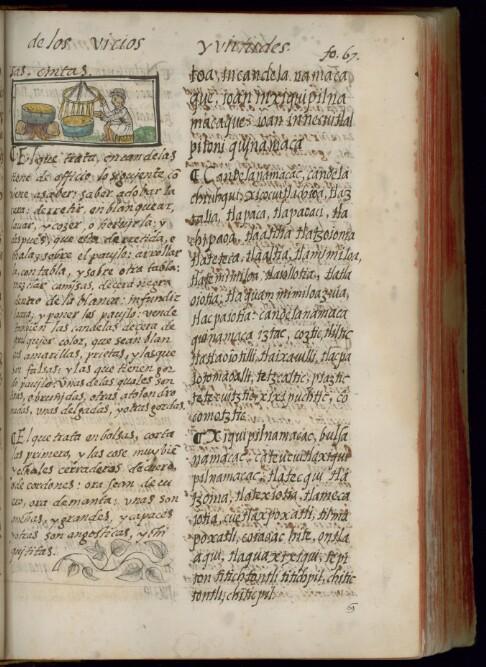 de los vicios y virtudes. fo. 67.
sas. cintas.
El que trata, en candelas
tiene de officio lo siguiente, co
viene a saber: saber adobar la
cera: derretir, en blanquear,
lauar, y cozer, o heruirla; y
despues, que esta derretida, e
chala, sobre el pauilo: arrollar
la, con tabla, y sobre otra tabla:
mezclar camisas, de cera negra
dentro de lo blanco: infundir
la cera, y poner los pauilo: vende
tanbien las candelas de cera de
qualquier color, que sean blan
cas amarillas, prietas, y las que
son falsas: y las que tienen gor
do pauilo: Vnas de las quales son
lisas, o bruñidas, otras atolondro
nadas, vnas delgadas, y otras gordas.
El que trata en bolsas, corta
las primero, y las cose muy bie
y echales cerraderos de cuero,
de cordones: ora sean de cu
ero, ora de manta: vnas son
anchas, y grandes, y capaces
y otras son angosticas, y chi
quititas.
toa, in candela namaca
que, ioan in xiquipilna
macaque: ioan in necuitlal
pitoni quinamaca
Candelanamacac, candela
chiuhqui, xicocuitlachiuа, tlaz
talia, tlapaca, tlapaoaci, tla
chipaoa, tlaatilia tlatzoionia
tlateteca, tlaaltia, tlamimiloa,
tlatemimiloa, tlaiollotia, tlatla
oiotia, tlaquammimiloazuia,
tlacpaiotia: candela namaca
quinamaca iztac, coztic, tliltic
tlatlaoiotilli, tlaixauilli, tlacpa
iotomaoalli, tetzcaltic, pitaztic
tetecuitztic, xixipuchtic, co
comotztic.
Xiquipilnamacac, bulsa
namacac: ca teucuitlaxiqui
pilnamacac, tlatequi tla
tzoma, tlatexiotia, tlameca
iotia, cuetlaxpoxatli, tilma
poxatli, coiaoac hite, ontla
aqui, tlaquaxixiqui, tepi
ton titichtontli titichpil, chitic
tontli, chiticpil.